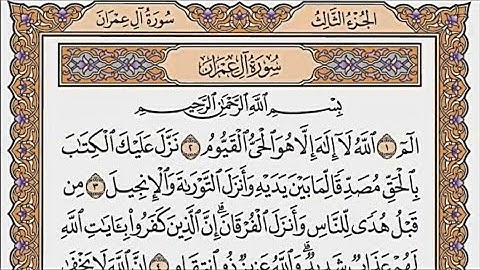 الجزء الثالث
سورة آل عمران
سورة آل عمران
بسم الله الرحمن الرحيم
الٓمٓ ١ ٱللَّهُ لَآ إِلَٰهَ إِلَّا هُوَ ٱلْحَىُّ ٱلْقَيُّومُ ٢ نَزَّلَ عَلَيْكَ ٱلْكِتَٰبَ
بِٱلْحَقِّ مُصَدِّقًا لِّمَا بَيْنَ يَدَيْهِ وَأَنزَلَ ٱلتَّوْرَىٰةَ وَٱلْإِنجِيلَ ٣ مِن
قَبْلُ هُدًى لِّلنَّاسِ وَأَنزَلَ ٱلْفُرْقَانَ ۗ إِنَّ ٱلَّذِينَ كَفَرُوا۟ بِـَٔايَٰتِ ٱللَّهِ
لَهُمْ عَذَابٌ شَدِيدٌ ۗ وَٱللَّهُ عَزِيزٌ ذُو ٱنتِقَامٍ ٤ إِنَّ ٱللَّهَ لَا يَخْفَىٰ